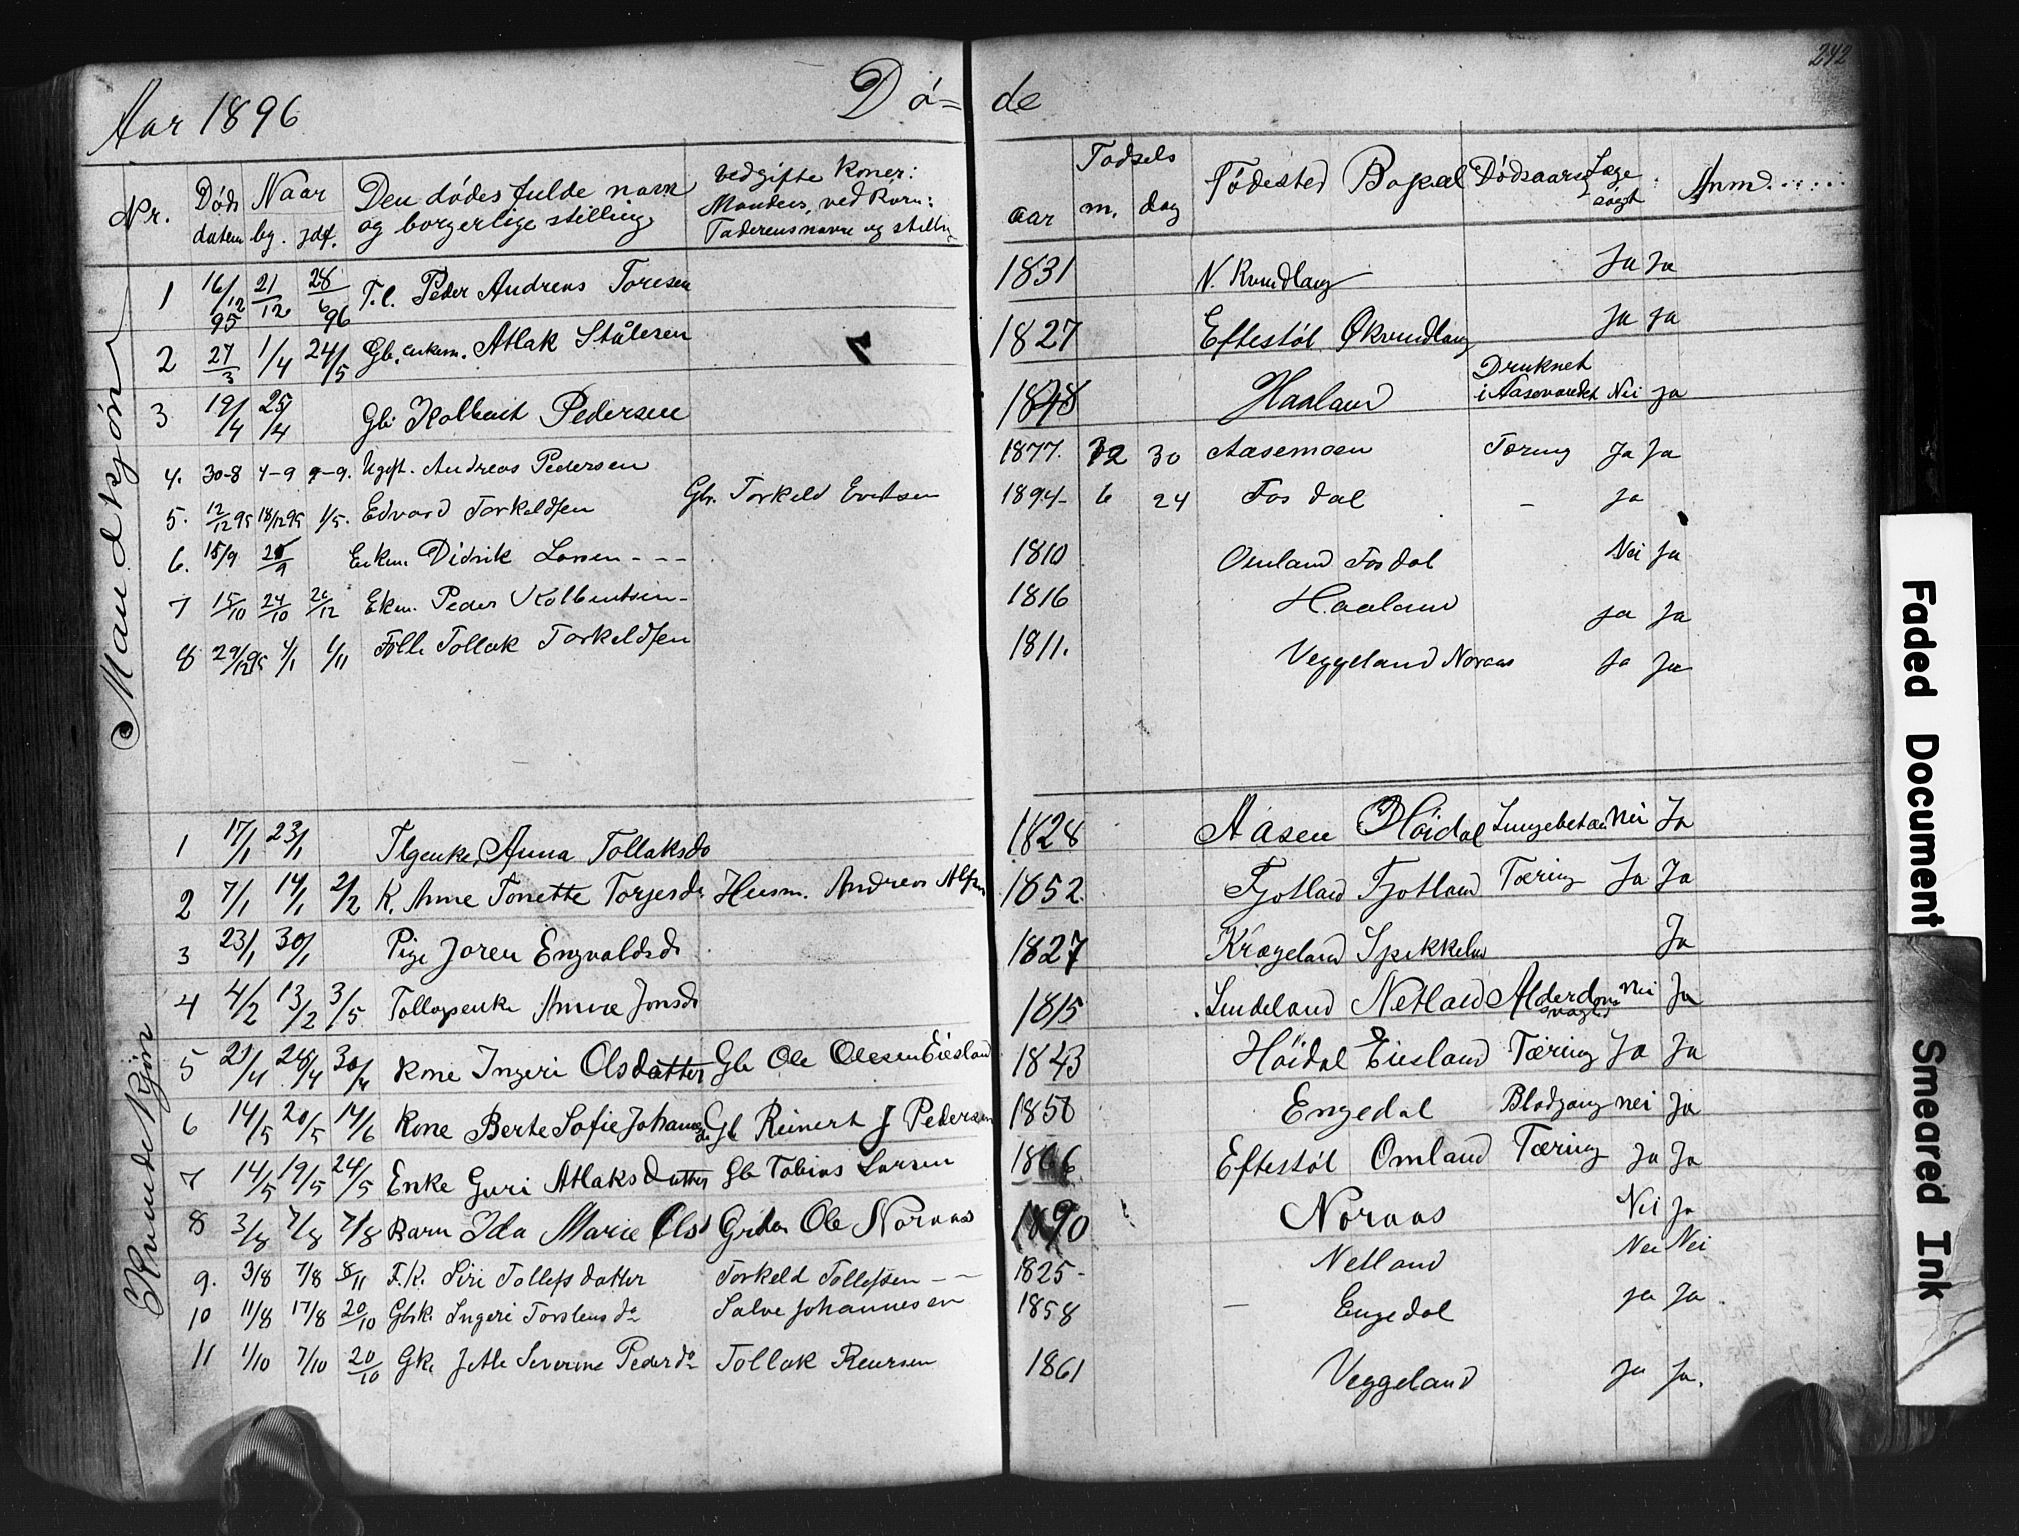 242
Aar 1896 Dø= de
Nr. Døds datum Naar bg. jdf. Den dødes fulde navn og borgerlige stilling vedgifte Koner: Mandens, ved Børn: Faderens navn og stilling aar Fødsels m. dag Fødested Bopæl Dødsaarsag Læge søgt Anm......
Mandkjøn
1 16/12 95 21/12 28/6 96 F.l. Peder Andreas Toresen 1831 N. Kvindlang Ja Ja
2 27/3 1/4 24/5 Gb. enkem. Atlak Stålesen 1827 Eftestøl Økvindlang Ja Ja
3 19/4 25/4 Gb. Kolbent Pedersen 1848 Haaland Druknet i Aasevandet Nei Ja
4. 30-8 4-9 9-9. Ugift. Andreas Pedersen 1877. 12 30 Aasemoen Tæring Ja Ja
5. 12/12 95 18/12 95 1/5. Edvard Torkeldsen Gbr. Torkeld Evertsen 1894- 6 24 Fosdal - Ja
6. 15/9 20/9 Enkem. Didrik Larsen - - - 1810 Omland Fosdal Nei Ja
7 15/10 24/10 20/12 Ekm. Peder Kolbentsen- 1816 Haaland Ja Ja
8 29/12 95 4/1 1/11 Tollak Torkeldsen 1811. Veggeland Noraas Ja Ja
Kvindekjøn
1 17/1 23/1 Flgenke. Anna Tollaksd 1828 Aasen Høidal Lungebetæn Nei Ja
2 7/1 14/1 2/2 K. Anne Tonette Torjesd. Husm. Andreas Alfsen 1852 Fjotland Fjotland Tæring Ja Ja
3 23/1 30/1 Pige Joren Engvaldsd 1827 Krageland Spikkeland Ja
4 4/2 13/2 3/5 Anne Jonsd 1815 Lindeland Netland Alderdoms svaghed Nei Ja
5 21/4 28/4 30/4 Kone Ingeri Olsdatter Gb Ole Olesen Eiesland 1843 Høidal Eiesland Tæring Ja Ja
6 14/5 20/5 14/6 Kone Berte Sofie Johannesd Gb Reinert J Pedersen 1850 Engedal Blodgang nei Ja
7 14/5 19/5 24/5 Enke Guri Atlaksdatter Gb Tobias Larsen 1866 Eftestøl Omland Tæring Ja Ja
8 3/8 7/8 7/8 Barn Ida Marie Olsd Ole Noraas 1890 Noraas Nei Ja
9. 3/8 7/8 8/11 F.K. Siri Tollefsdatter Torkeld Tollefsen - - 1825- Netland Nei Nei
10 11/8 17/8 20/10 Gbk. Ingeri Torstensd Salve Johannesen 1858 - Engedal Ja Ja
11 1/10 7/10 20/10 Gk. Jetle Severine Pedersd Tollak Reiersen 1861 Veggeland Ja Ja.
Faded Document
Smeared Ink